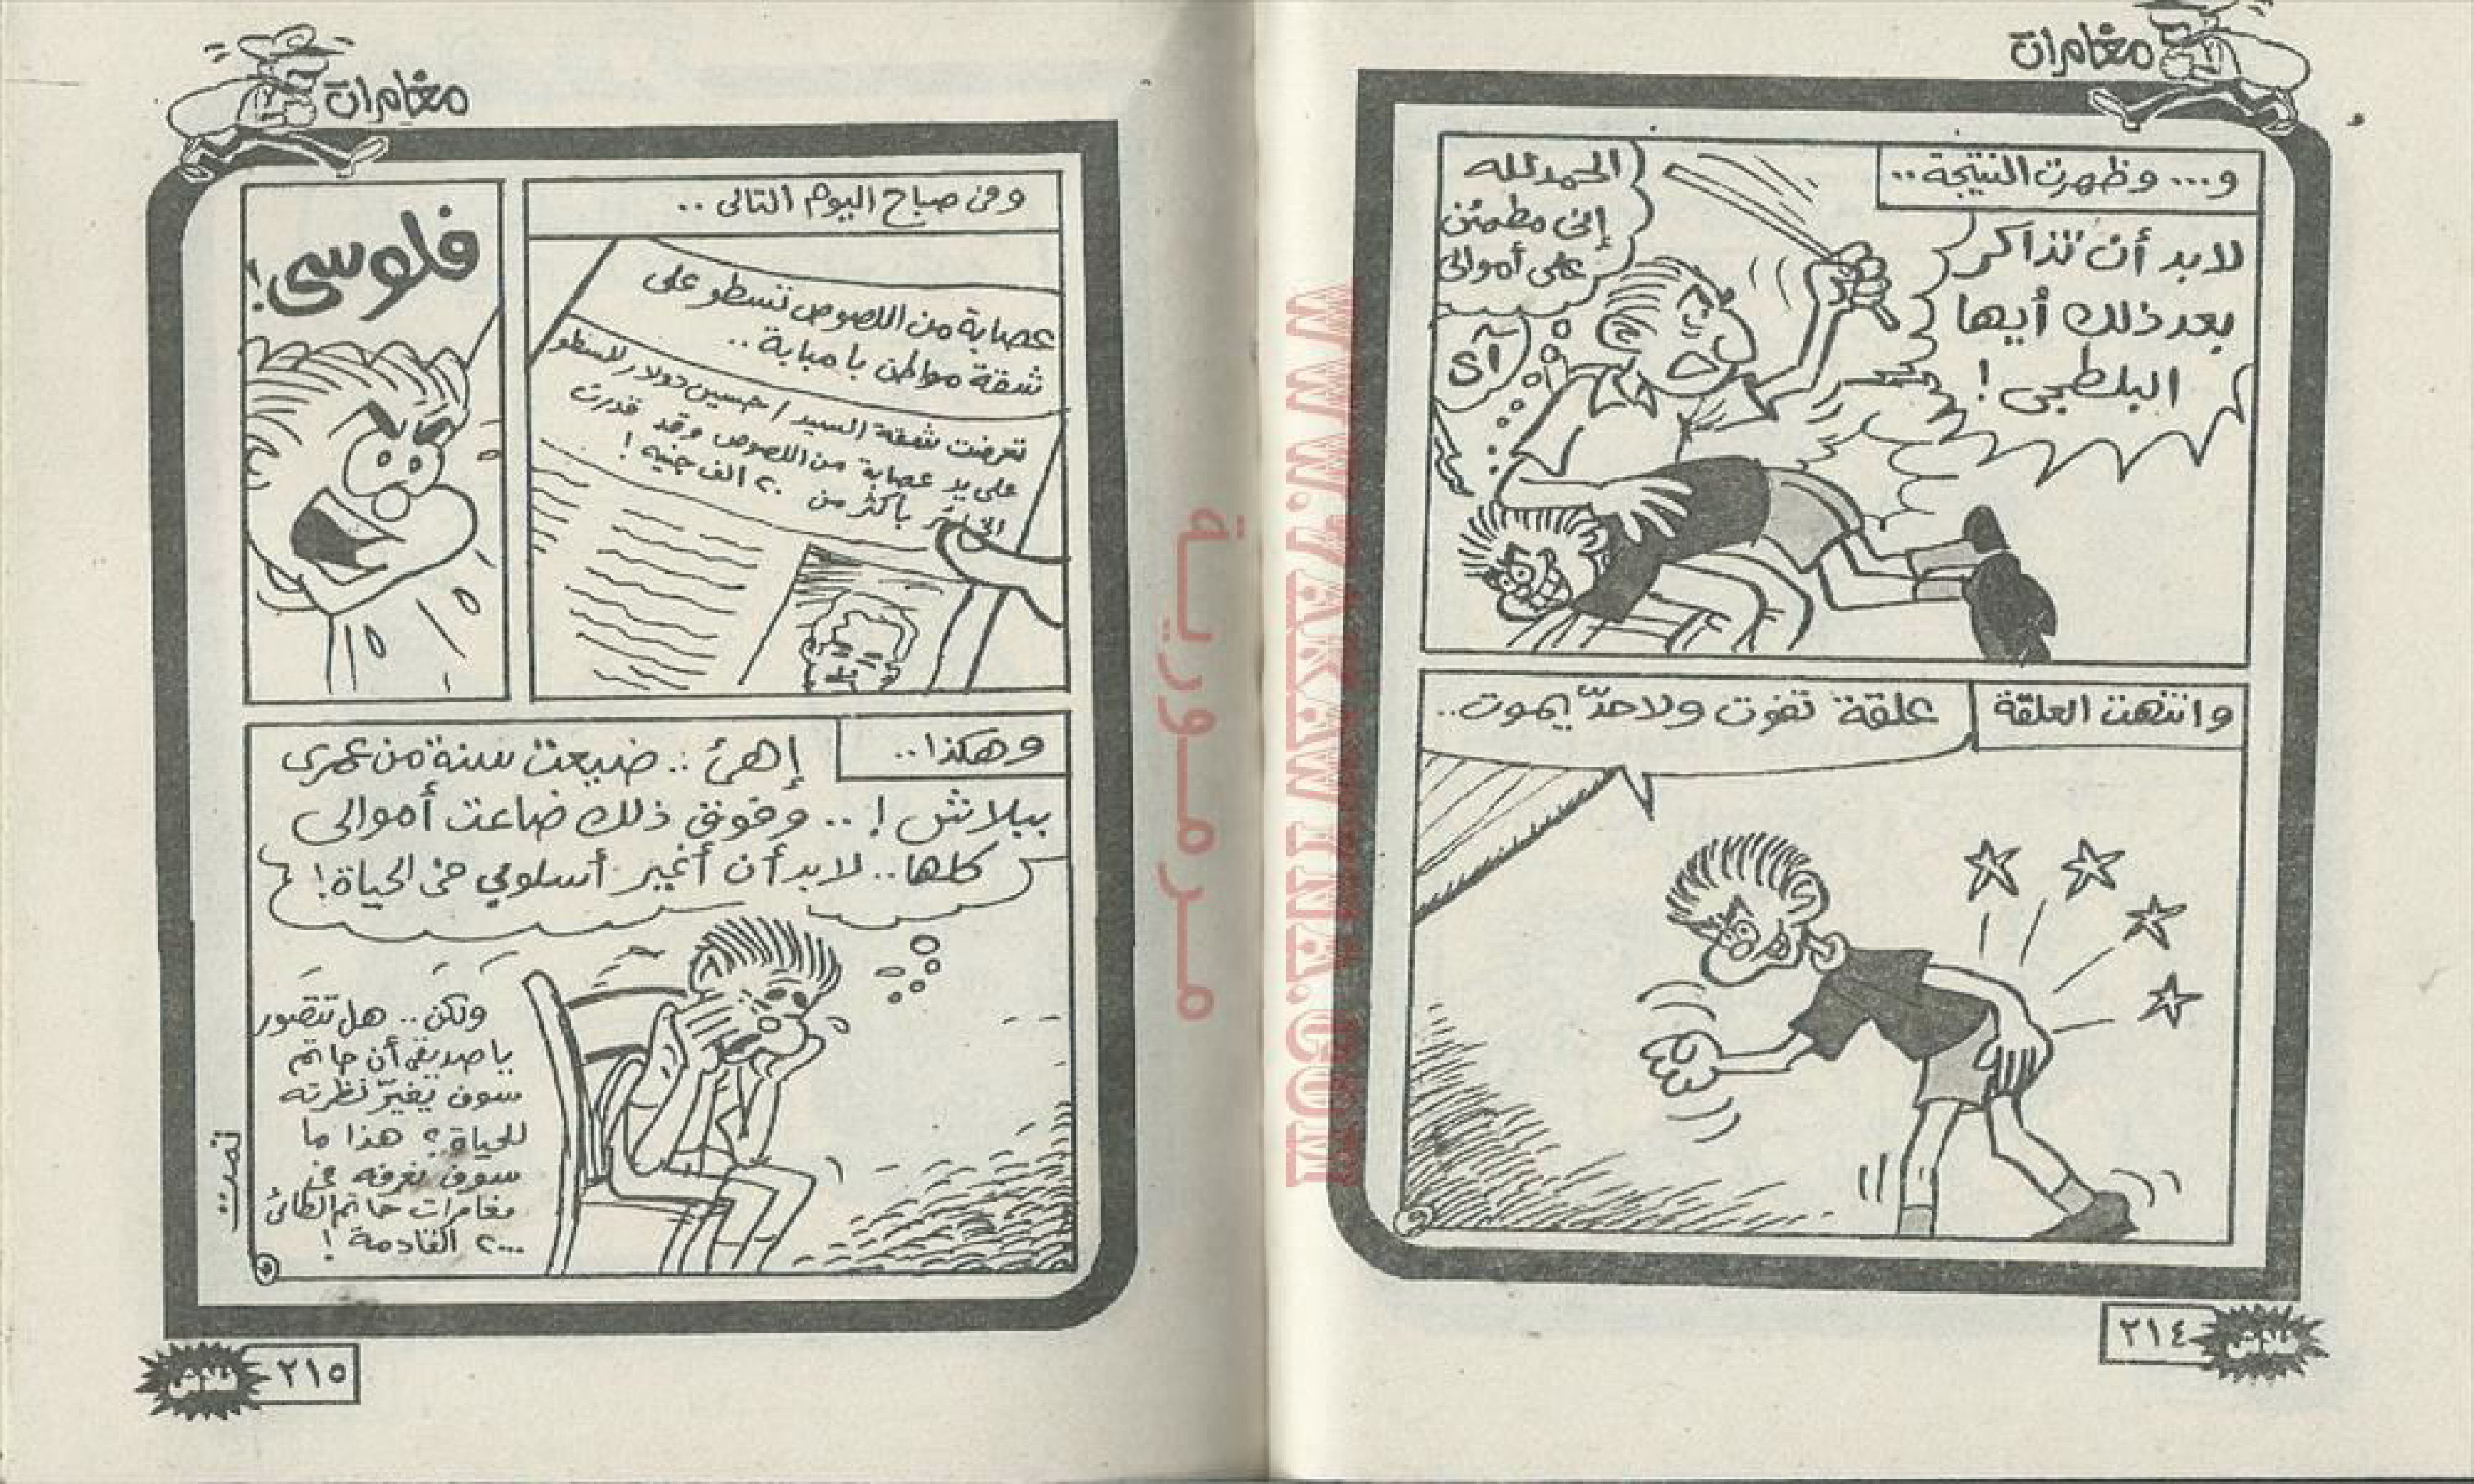 مغامرات
و... وظهرت النتيجة..
لابد أن تذاكر
بعد ذلك أيها
البلطجى !
الحمد لله
إنى مطمئن
على أموالى
آى
وانتهت العلقة
علقة تفوت ولا حدّ يموت..
٢١٤
مغامرات
وفى صباح اليوم التالى ..
عصابة من اللصوص تسطو على
شقة مواطن بامبابة ..
تعرضت شقة السيد / حسين دولار للسطو
على يد عصابة من اللصوص وقد قدرت
بأكثر من ٢٠ الف جنيه !
فلوسى !
وهكذا..
إهئ .. ضيعت سنة من عمرى
ببلاش ! .. وفوق ذلك ضاعت أموالى
كلها.. لابد أن أغير أسلوبي فى الحياة !
ولكن .. هل تتصور
يا صديقى أن حاتم
سوف يغيّر نظرته
للحياة ؟ هذا ما
سوف نعرفه فى
مغامرات حاتم الطائى
٢٠٠٠ القادمة !
تمت
٢١٥
مرمورية